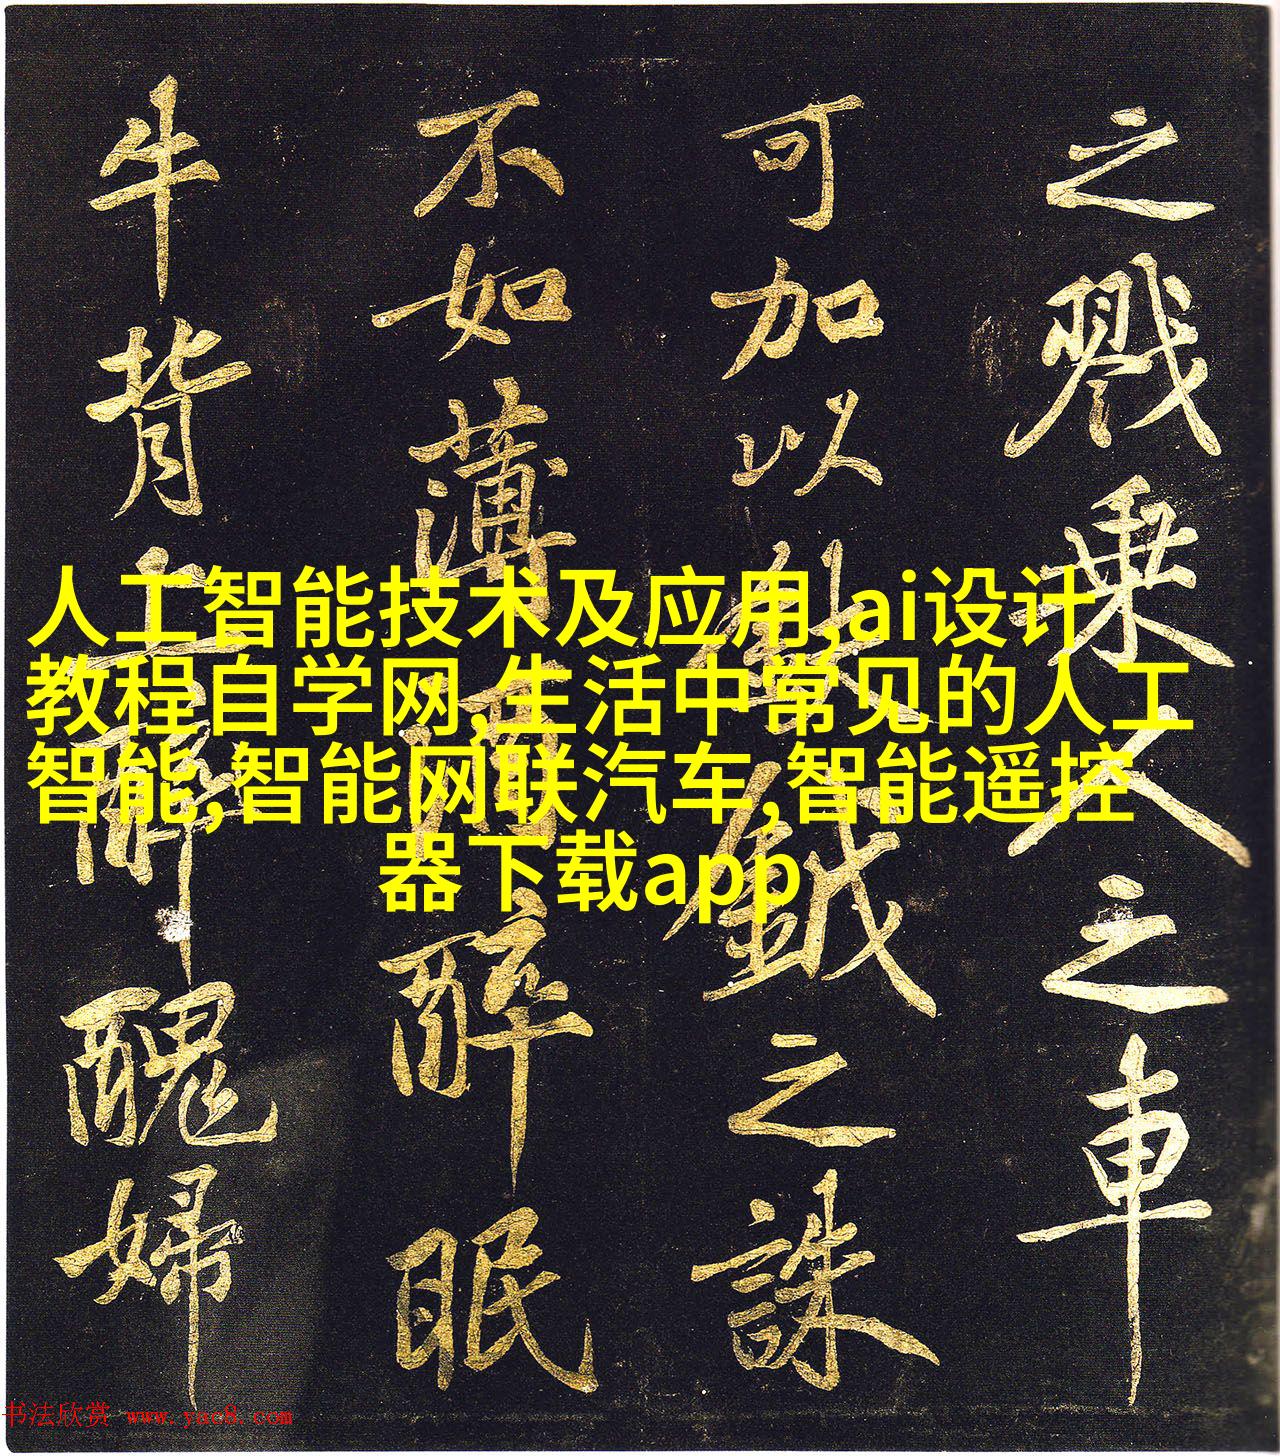 之戮乘人之車
可加以鉞之誅
不如薄酒醉眠
牛背上醉醜婦
人工智能技术及应用,ai设计
教程自学网,生活中常见的人工
智能,智能网联汽车,智能遥控
器下载app
书法欣赏 www.yac8.com